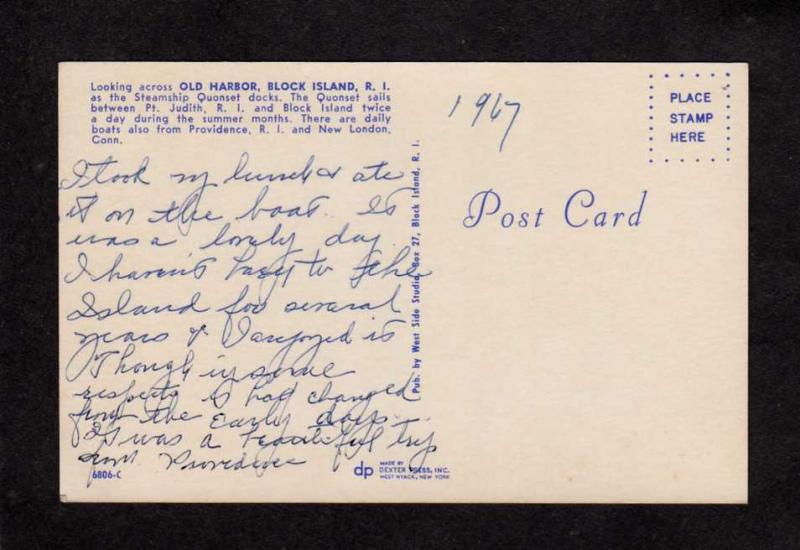 Looking across OLD HARBOR, BLOCK ISLAND, R. I.
as the Steamship Quonset docks. The Quonset sails
between Pt. Judith, R. I. and Block Island twice
a day during the summer months. There are daily
boats also from Providence, R. I. and New London,
Conn.
1967
PLACE
STAMP
HERE
I took my lunch & ate
it on the boat. It
was a lovely day
I haven't been to the
Island for several
years & I enjoyed it
Though in some
respects it had changed
from the Early days.
It was a beautiful trip
from Providence
Pub. by West Side Studio, Box 27, Block Island, R. I.
Post Card
6806-C
dp
MADE BY
DEXTER PRESS, INC.
WEST NYACK, NEW YORK